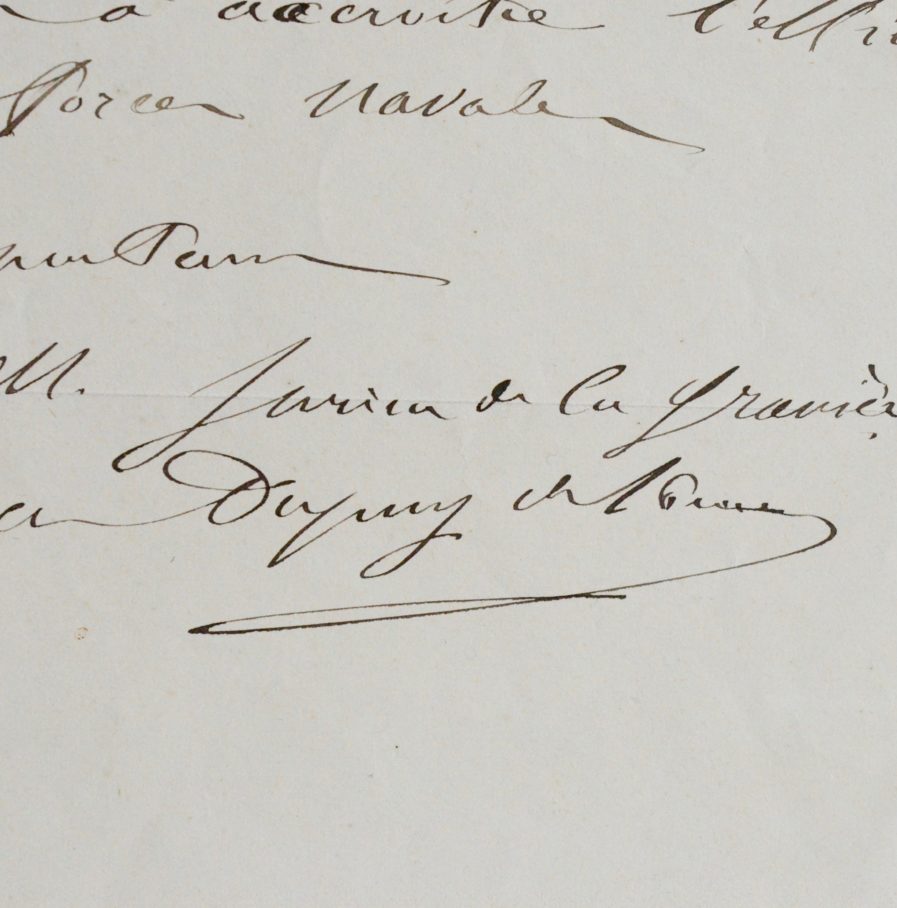 à accroître l'effi
forces navales
M. Jurien de la Graviè
Dupuy de Lôme